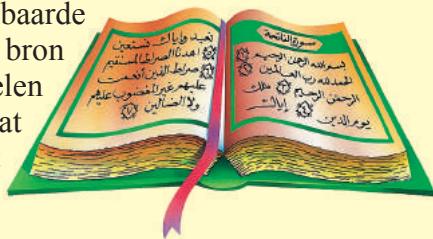 baarde
bron
elen
at
سورة الفاتحة
بسم الله الرحمن الرحيم
الحمد لله رب العالمين
الرحمن الرحيم ملك
يوم الدين إياك
نعبد وإياك نستعين
اهدنا الصراط المستقيم
صراط الذين أنعمت
عليهم غير المغضوب عليهم
ولا الضالين